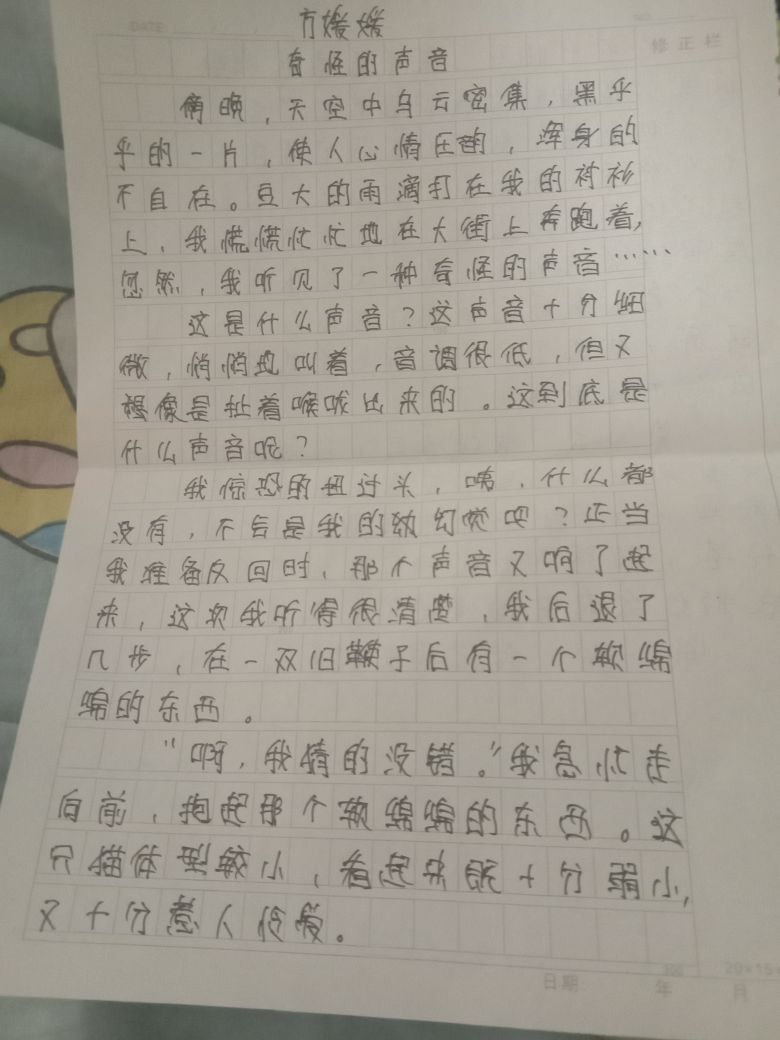 DATE
NO
修正栏
方媛媛
奇怪的声音
傍晚，天空中乌云密集，黑乎
乎的一片，使人心情压的，浑身的
不自在。豆大的雨滴打在我的衬衫
上，我慌慌忙忙地在大街上奔跑着，
忽然，我听见了一种奇怪的声音……
这是什么声音？这声音十分细
微，悄悄地叫着，音调很低，但又
想像是扯着喉咙出来的。这到底是
什么声音呢？
我惊恐的扭过头，咦，什么都
没有，不会是我的幻觉吧？正当
我准备反回时，那个声音又响了起
来，这次我听得很清楚，我后退了
几步，在一双旧鞋子后有一个软绵
绵的东西。
“啊，我猜的没错。”我急忙走
向前，抱起那个软绵绵的东西。这
只猫体型较小，看起来既十分弱小，
又十分惹人怜爱。
日期 年 月